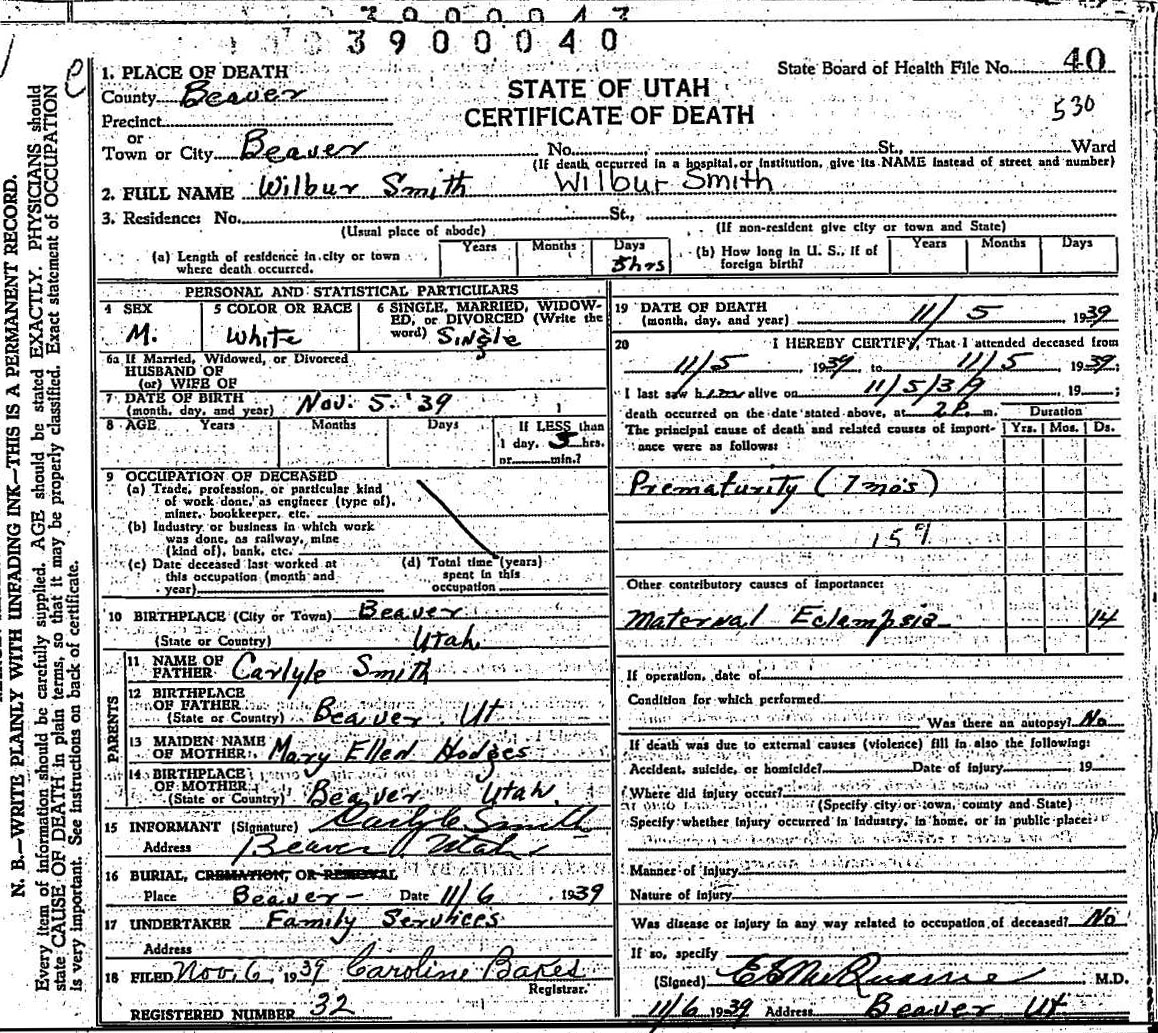 3900040
State Board of Health File No. 40
530
STATE OF UTAH
CERTIFICATE OF DEATH
1. PLACE OF DEATH
County Beaver
Precinct
or
Town or City Beaver No. St., Ward
(If death occurred in a hospital or institution, give its NAME instead of street and number)
2. FULL NAME Wilbur Smith Wilbur Smith
3. Residence: No. St.,
(Usual place of abode) (If non-resident give city or town and State)
(a) Length of residence in city or town where death occurred. Years Months Days 5hrs
(b) How long in U. S., if of foreign birth? Years Months Days
PERSONAL AND STATISTICAL PARTICULARS
4 SEX M.
5 COLOR OR RACE White
6 SINGLE, MARRIED, WIDOW-
ED, or DIVORCED (Write the
word) Single
6a If Married, Widowed, or Divorced
HUSBAND OF
(or) WIFE OF
7 DATE OF BIRTH
(month, day, and year) Nov. 5. '39
8 AGE Years Months Days
If LESS than
1 day, 5 hrs.
or min.?
9 OCCUPATION OF DECEASED
(a) Trade, profession, or particular kind
of work done, as engineer (type of),
miner, bookkeeper, etc.
(b) Industry or business in which work
was done, as railway, mine
(kind of), bank, etc.
(c) Date deceased last worked at
this occupation (month and
year)
(d) Total time (years)
spent in this
occupation
10 BIRTHPLACE (City or Town) Beaver
(State or Country) Utah.
PARENTS
11 NAME OF
FATHER Carlyle Smith
12 BIRTHPLACE
OF FATHER
(State or Country) Beaver Ut
13 MAIDEN NAME
OF MOTHER Mary Ellen Hodges
14 BIRTHPLACE
OF MOTHER
(State or Country) Beaver Utah.
15 INFORMANT (Signature) Carlyle Smith
Address Beaver Utah
16 BURIAL, CREMATION, OR REMOVAL
Place Beaver- Date 11/6 1939
17 UNDERTAKER Family Services
Address
18 FILED Nov. 6, 1939 Caroline Bakes
Registrar.
REGISTERED NUMBER 32
19 DATE OF DEATH
(month, day, and year) 11/5 1939
20 I HEREBY CERTIFY, That I attended deceased from
11/5, 1939, to 11/5 1939;
I last saw him alive on 11/5/39 19 ;
death occurred on the date stated above, at 2P. m.
Duration
Yrs. Mos. Ds.
The principal cause of death and related causes of import-
ance were as follows:
Prematurity (7 mos)
159
Other contributory causes of importance:
Maternal Eclampsia 14
If operation, date of
Condition for which performed
Was there an autopsy? No
If death was due to external causes (violence) fill in also the following:
Accident, suicide, or homicide? Date of injury 19
Where did injury occur?
(Specify city or town, county and State)
Specify whether injury occurred in industry, in home, or in public place:
Manner of injury
Nature of injury
Was disease or injury in any way related to occupation of deceased? No
If so, specify
(Signed) M.D.
11/6 1939 Address Beaver Ut.
N. B.—WRITE PLAINLY WITH UNFADING INK—THIS IS A PERMANENT RECORD.
Every item of information should be carefully supplied. AGE should be stated EXACTLY. PHYSICIANS should
state CAUSE OF DEATH in plain terms, so that it may be properly classified. Exact statement of OCCUPATION
is very important. See instructions on back of certificate.